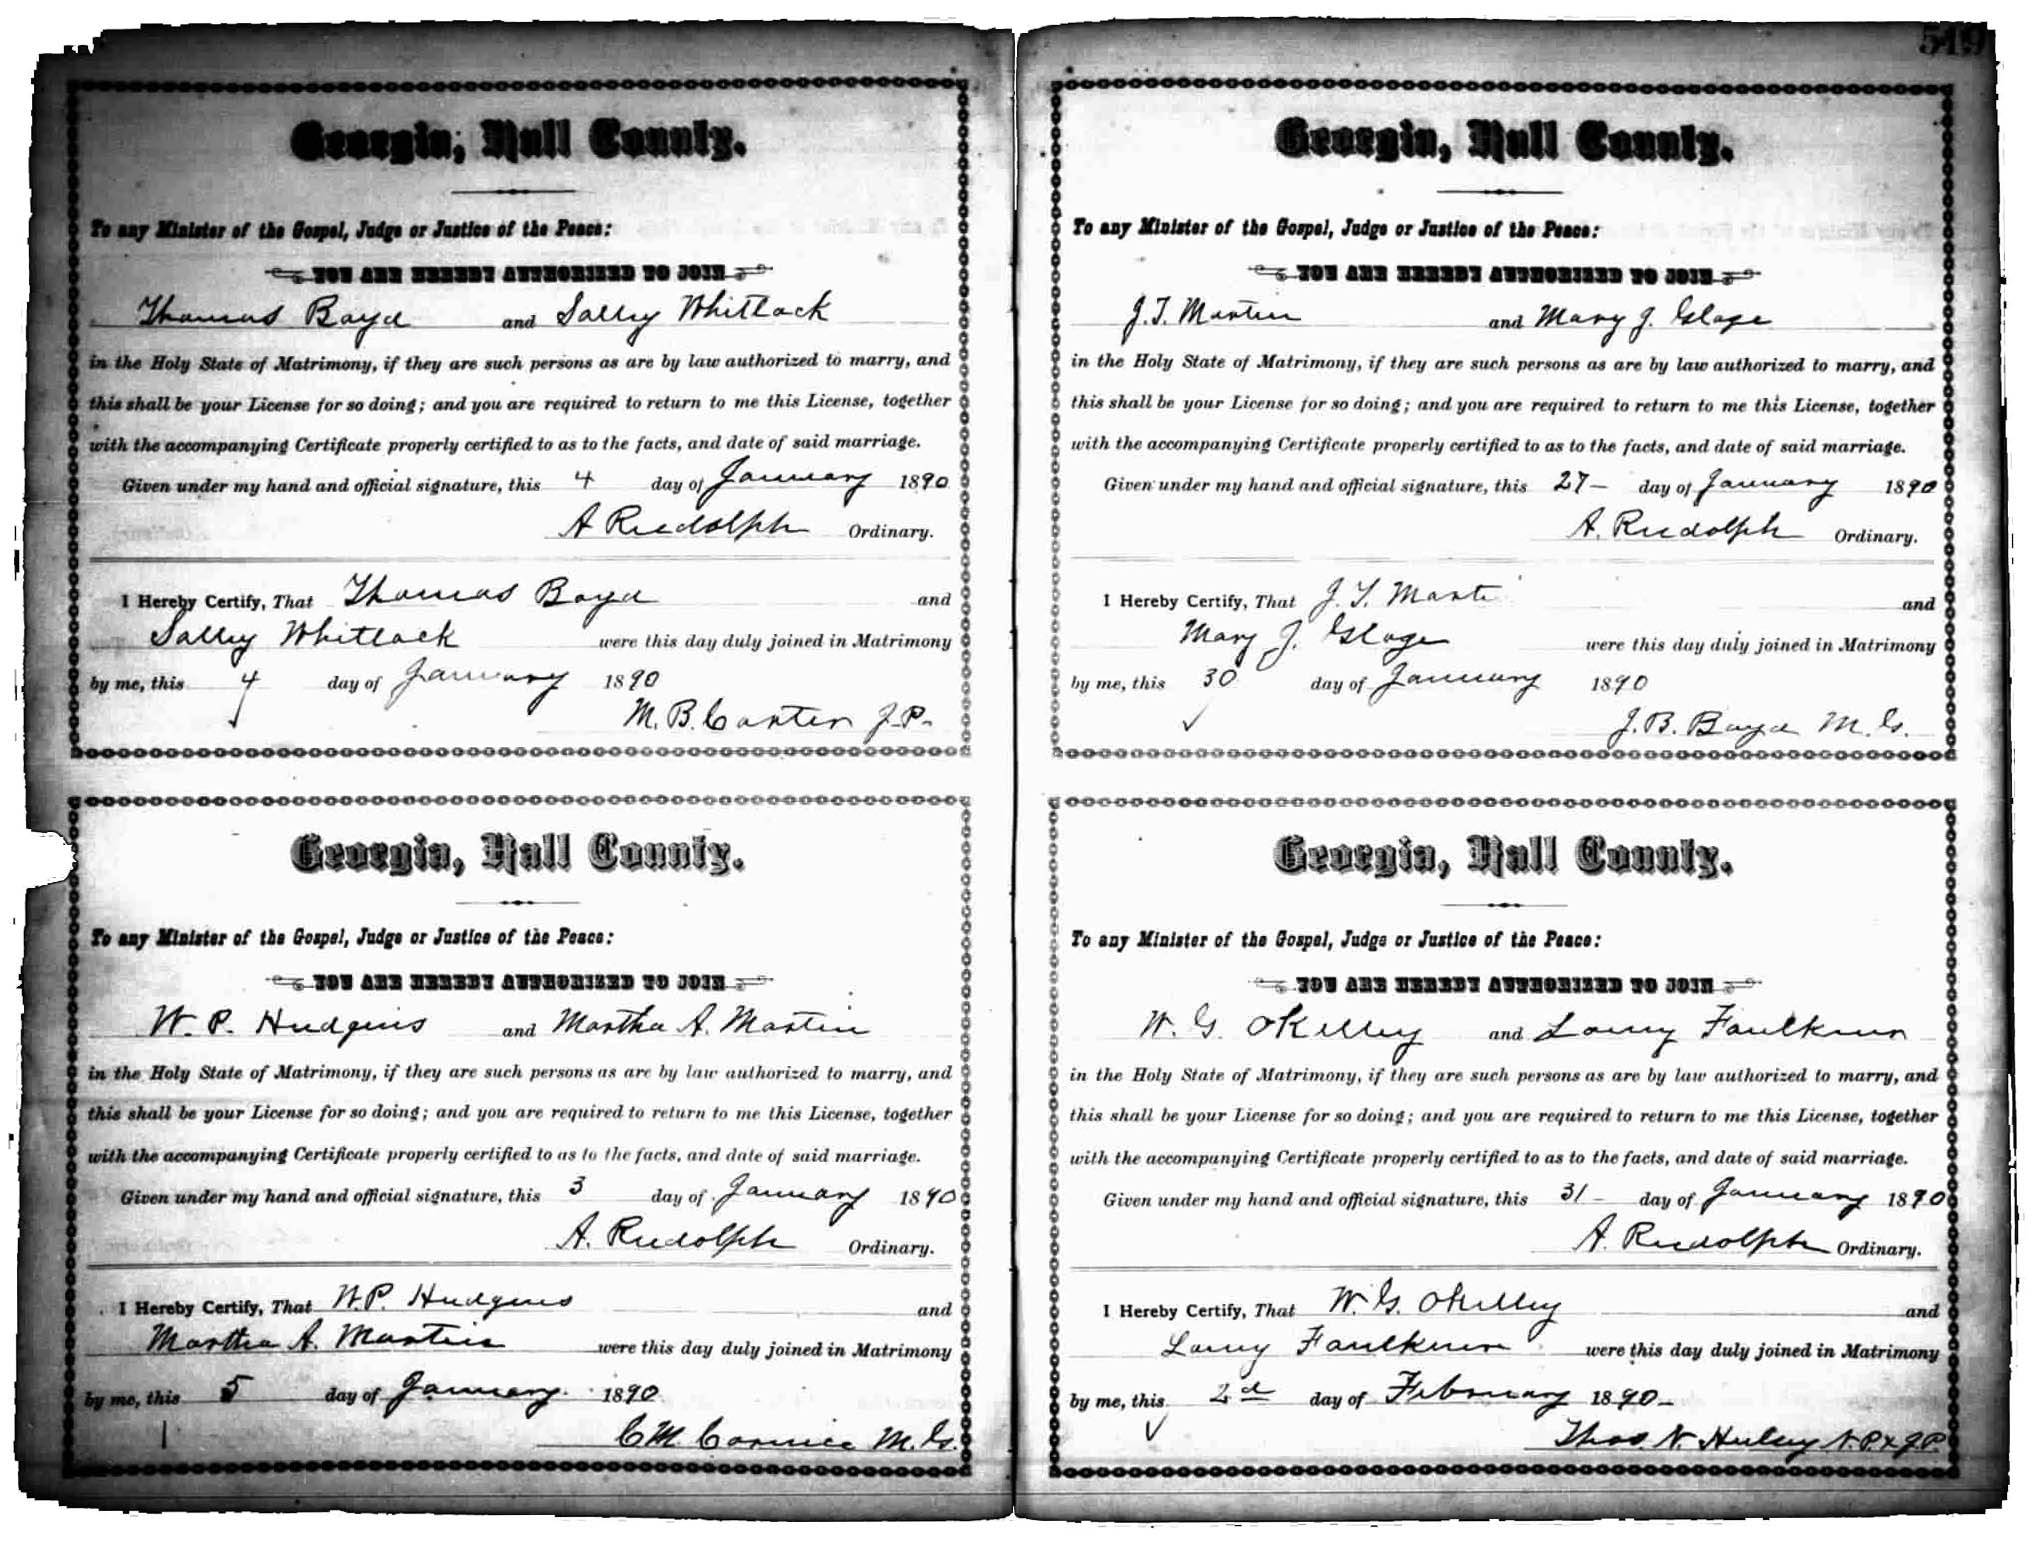 519
Georgia, Hall County.
To any Minister of the Gospel, Judge or Justice of the Peace:
YOU ARE HEREBY AUTHORIZED TO JOIN
Thomas Boyd and Sally Whitlock
in the Holy State of Matrimony, if they are such persons as are by law authorized to marry, and
this shall be your License for so doing; and you are required to return to me this License, together
with the accompanying Certificate properly certified to as to the facts, and date of said marriage.
Given under my hand and official signature, this 4 day of January 1890
A Rudolph Ordinary.
I Hereby Certify, That Thomas Boyd and
Sally Whitlock were this day duly joined in Matrimony
by me, this 4 day of January 1890
M. B. Carter J.P.
Georgia, Hall County.
To any Minister of the Gospel, Judge or Justice of the Peace:
YOU ARE HEREBY AUTHORIZED TO JOIN
W. P. Hudgins and Martha A. Martin
in the Holy State of Matrimony, if they are such persons as are by law authorized to marry, and
this shall be your License for so doing; and you are required to return to me this License, together
with the accompanying Certificate properly certified to as to the facts, and date of said marriage.
Given under my hand and official signature, this 3 day of January 1890
A. Rudolph Ordinary.
I Hereby Certify, That W. P. Hudgins and
Martha A. Martin were this day duly joined in Matrimony
by me, this 5 day of January 1890
C M. M. G.
Georgia, Hall County.
To any Minister of the Gospel, Judge or Justice of the Peace:
YOU ARE HEREBY AUTHORIZED TO JOIN
J. T. Martin and Mary J.
in the Holy State of Matrimony, if they are such persons as are by law authorized to marry, and
this shall be your License for so doing; and you are required to return to me this License, together
with the accompanying Certificate properly certified to as to the facts, and date of said marriage.
Given under my hand and official signature, this 27 – day of January 1890
A. Rudolph Ordinary.
I Hereby Certify, That J. T. Marti and
Mary J. were this day duly joined in Matrimony
by me, this 30 day of January 1890
J. B. Boyd M. G.
Georgia, Hall County.
To any Minister of the Gospel, Judge or Justice of the Peace:
YOU ARE HEREBY AUTHORIZED TO JOIN
W. G. OKelley and Faulkner
in the Holy State of Matrimony, if they are such persons as are by law authorized to marry, and
this shall be your License for so doing; and you are required to return to me this License, together
with the accompanying Certificate properly certified to as to the facts, and date of said marriage.
Given under my hand and official signature, this 31 – day of January 1890
A. Rudolph Ordinary.
I Hereby Certify, That W. G. OKelley and
Faulkner were this day duly joined in Matrimony
by me, this 2d day of February 1890 –
Thos. N. N.P. & J.P.